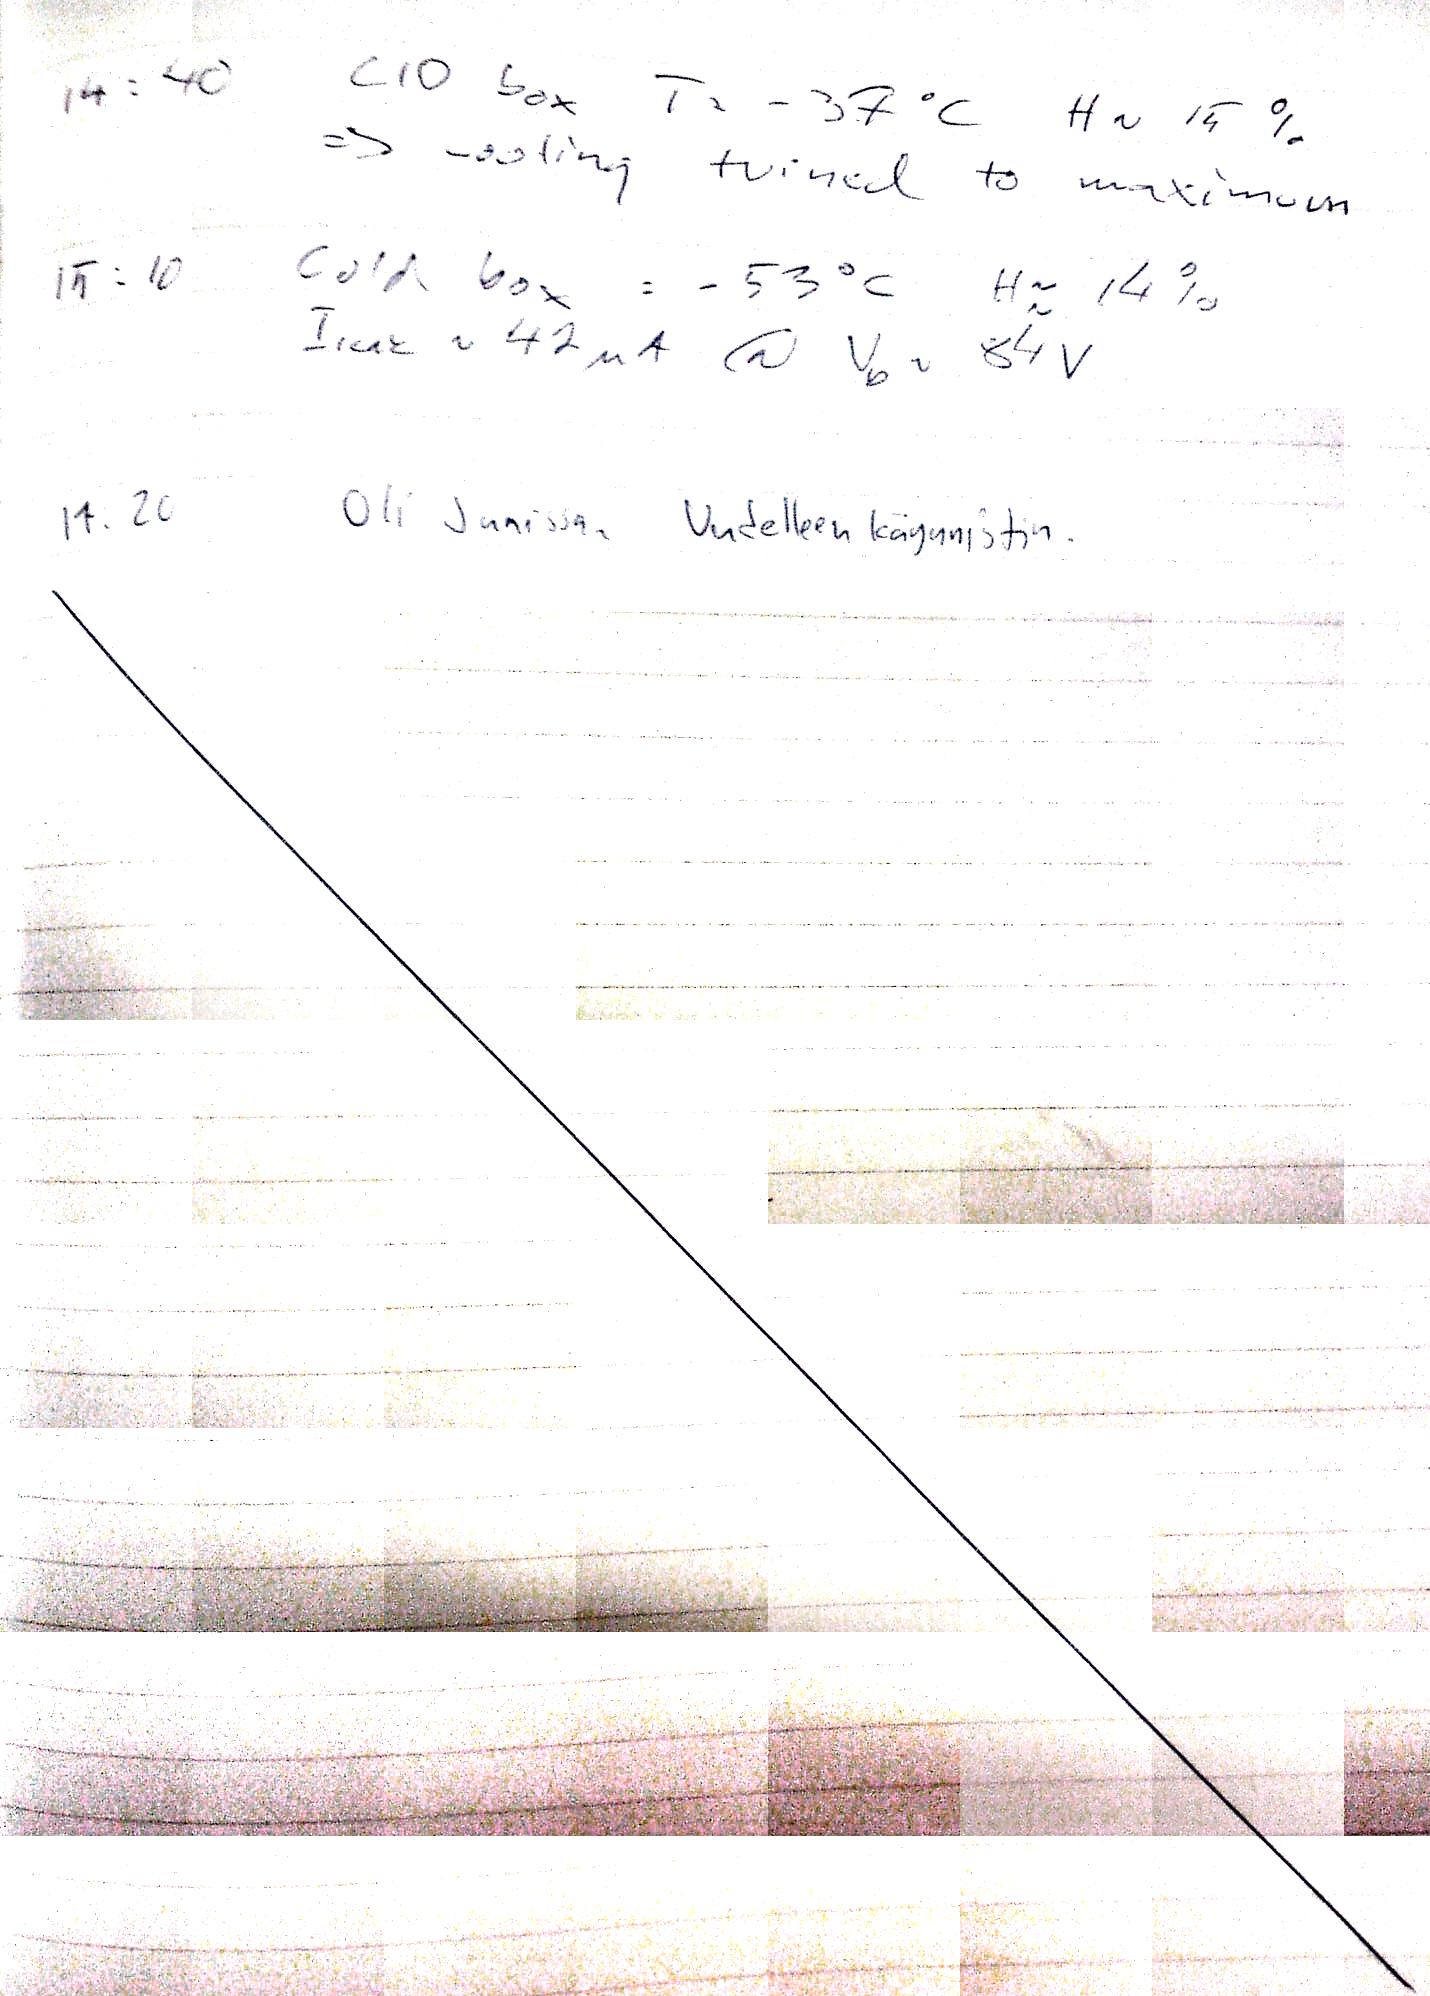 14:40 C10 box T ≈ -37 °C H ~ 15 %
=> cooling turned to maximum
15:10 Cold box = -53 °C H ≈ 14 %
~ 42 μA @ Vb ~ 84 V
14.20 Oli Jumissa. Uudelleen käynnistin.